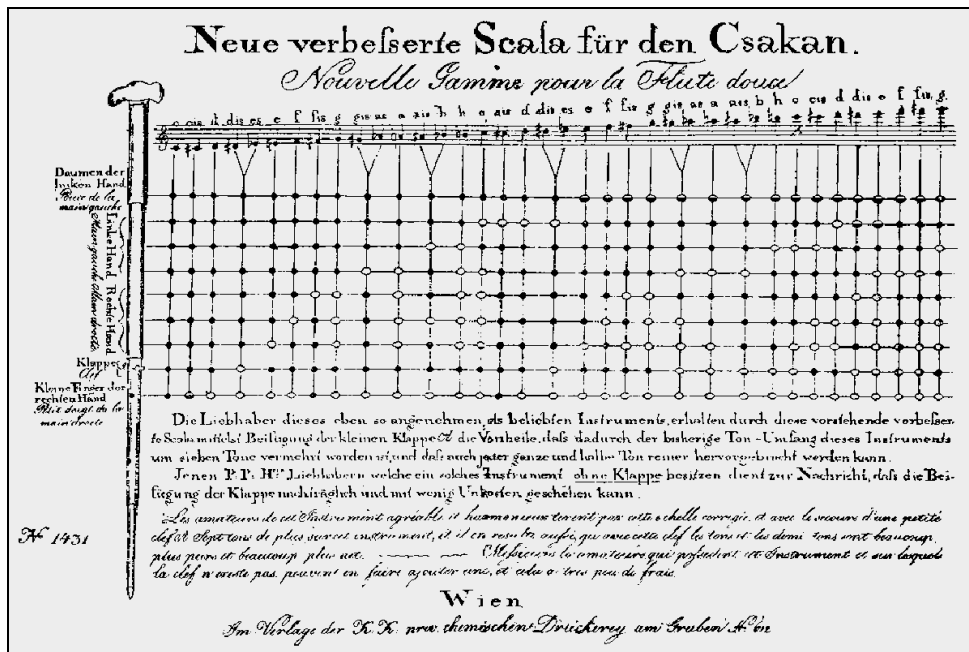 Neue verbesserte Scala für den Csakan.
Nouvelle Gamme pour la Flute douce
c cis d dis es e f fis g gis as a ais b h c cis d dis es e f fis g gis as a ais b h c cis d dis e f fis g.
Daumen der
linken Hand
Pouce de la
main gauche
Linke Hand
Main gauche
Rechte Hand
main droite
Klappe
Clef
Kleine Finger der
rechten Hand
Petit doigt de la
main droite
Die Liebhaber dieses eben so angenehmen, als beliebten Instruments, erhalten durch diese vorstehende verbesser-
te Scala mittelst Beifügung der kleinen Klappe die Vortheile, daß dadurch der bisherige Ton-Umfang dieses Instruments
um sieben Töne vermehrt worden ist, und daß auch jeder ganze und halbe Ton reiner hervorgebracht werden kann.
Jenen P. P. Hrn. Liebhabern welche ein solches Instrument ohne Klappe besitzen dient zur Nachricht, daß die Bei-
fügung der Klappe nachträglich und mit wenig Unkosten geschehen kann.
Les amateurs de cet Instrument agréable et harmonieux par cette echelle corrigée et avec le secours d'une petite
clef sept tons de plus sur cet instrument, et il en aussi, que avec cette clef les tons et les demi tons sont beaucoup
plus purs et beaucoup plus net. Messieurs les amateurs qui possedent cet Instrument et sur lequel
la clef n'existe pas, peuvent en faire ajouter une, et cela a tres peu de frais.
No 1431
Wien
Im Verlage der K. K. priv. chemischen Druckerey am Graben